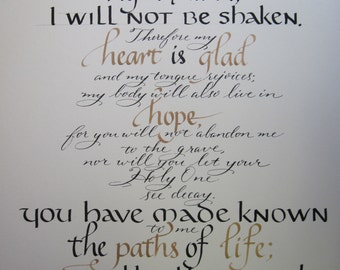 I WILL NOT BE SHAKEN.
Therefore my
heart is glad
and my tongue rejoices;
my body will also live in
hope,
for you will not abandon me
to the grave,
nor will you let your
Holy One
see decay.
YOU HAVE MADE KNOWN
to me
the paths of life;